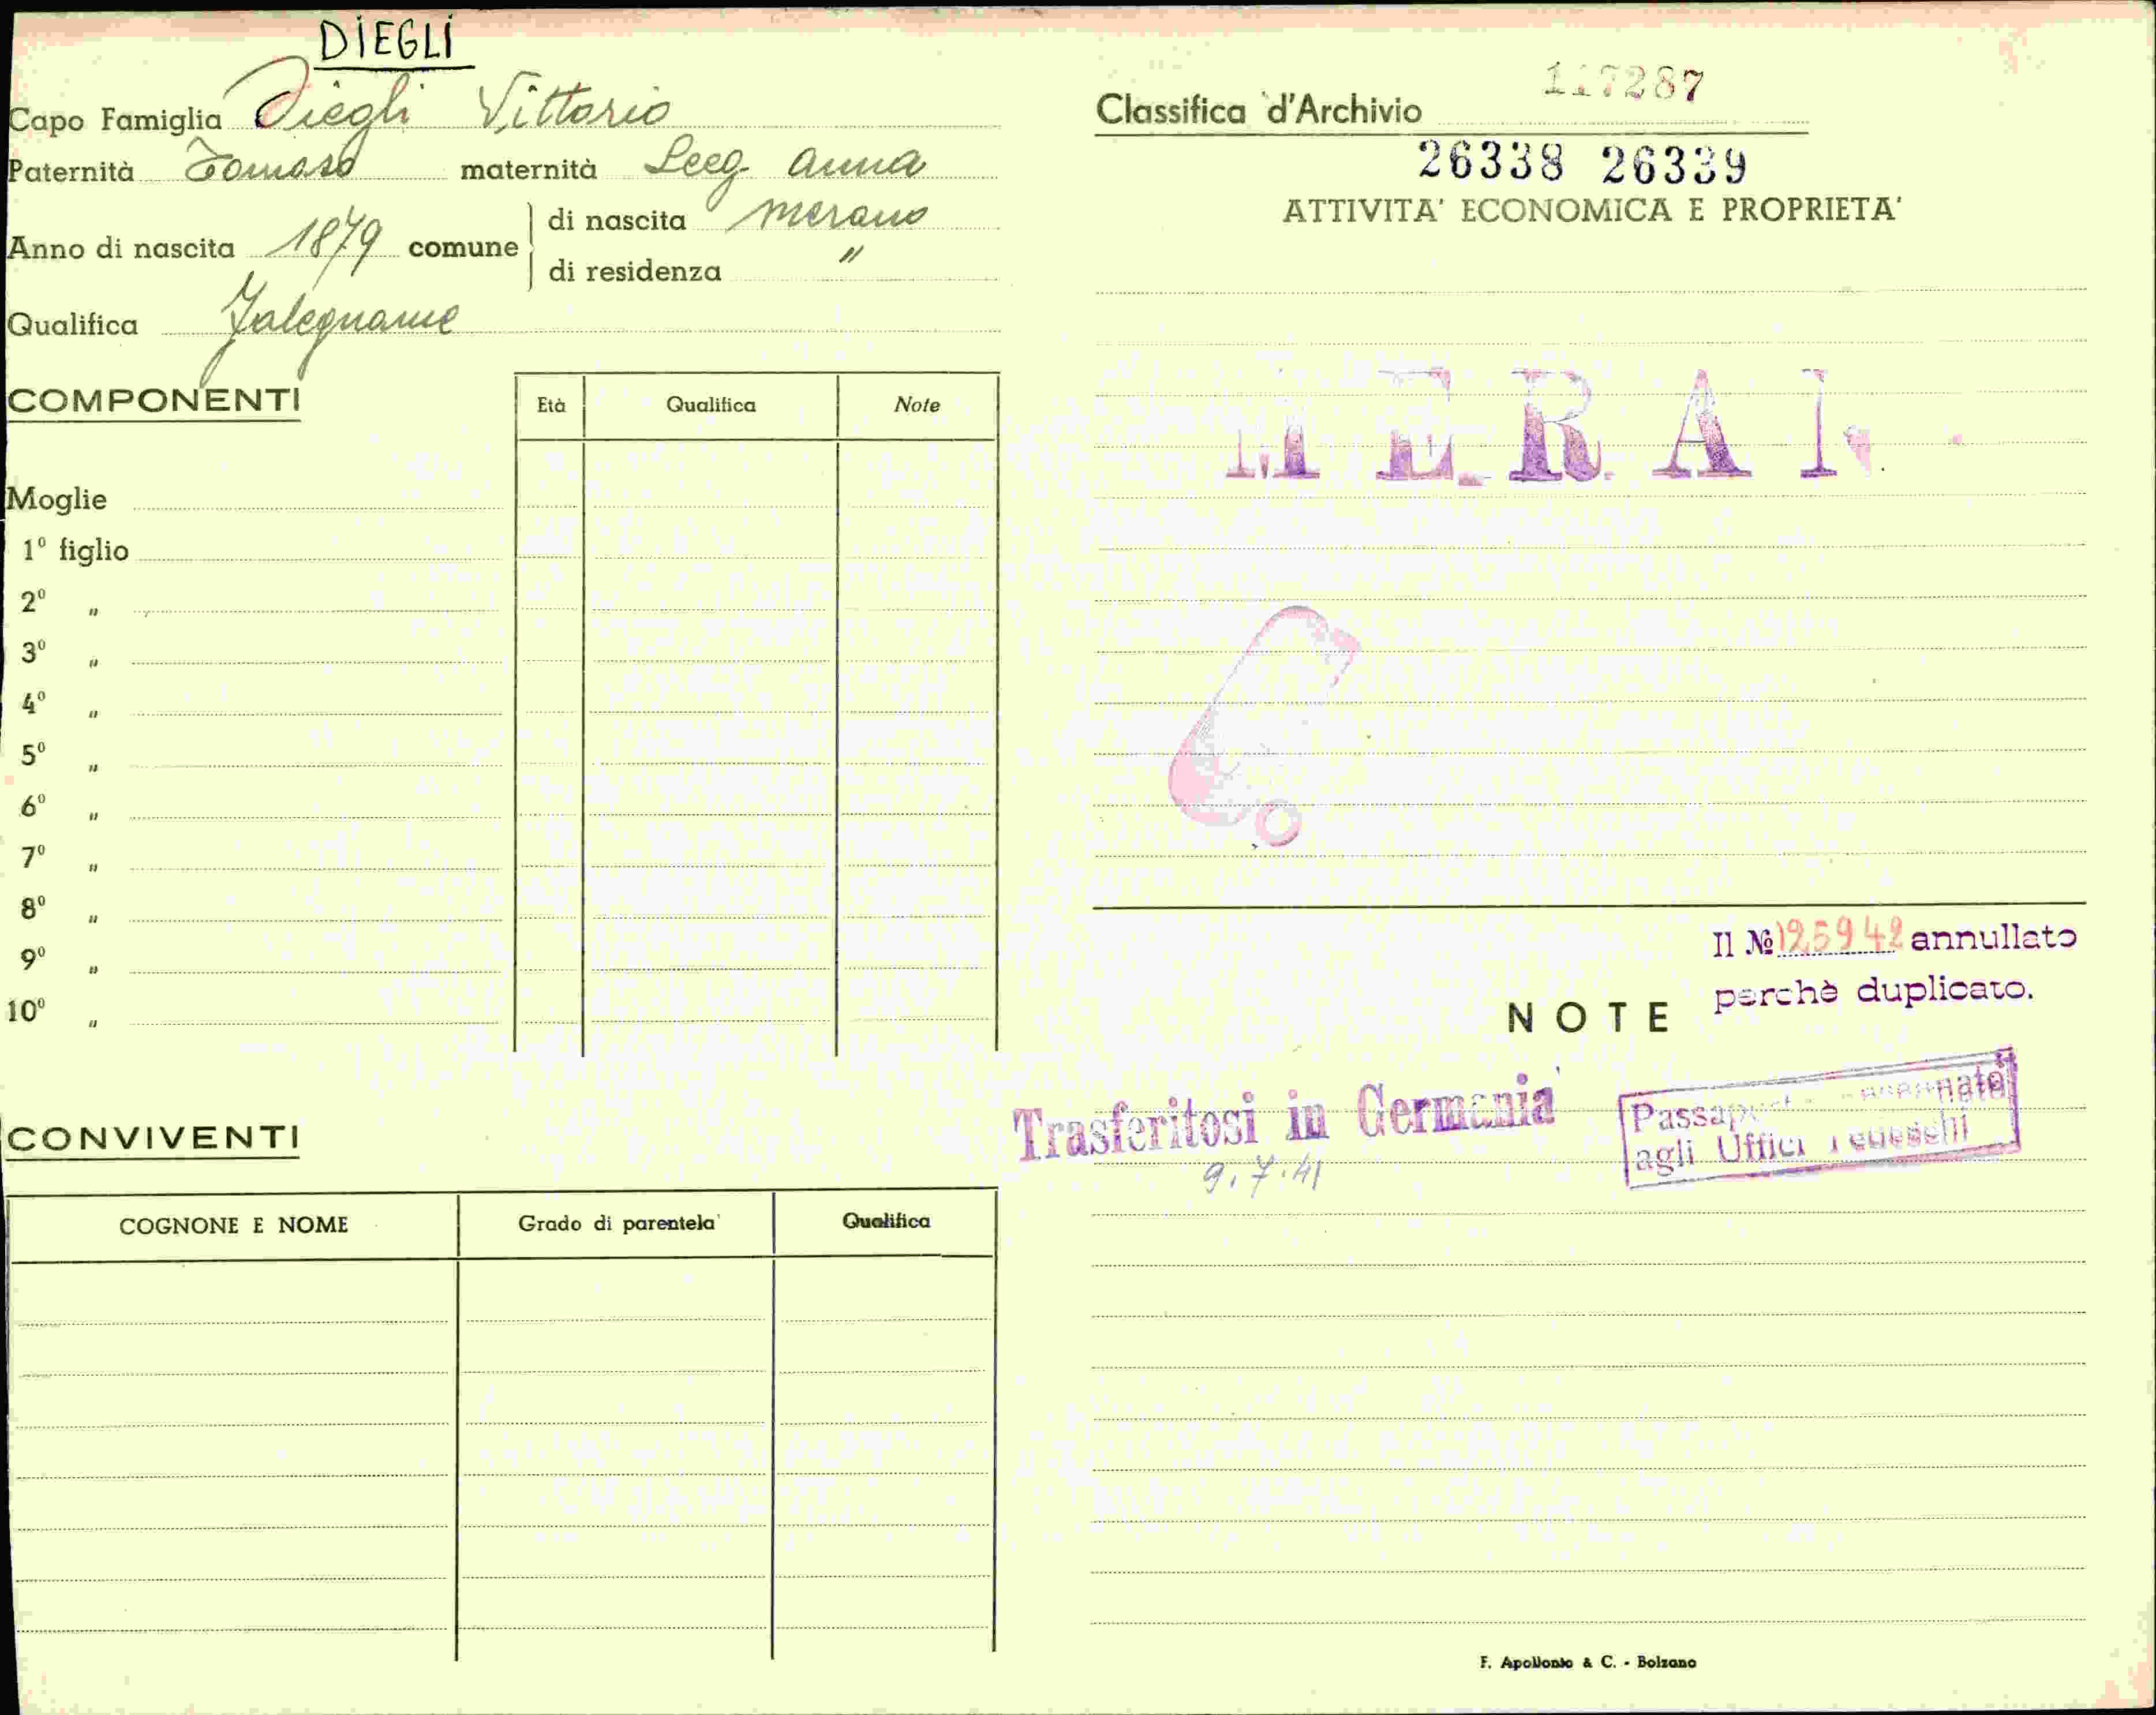 DIEGLI
Capo Famiglia Diegli Vittorio
Paternità Tomaso maternità Leeg. Anna
Anno di nascita 1879 comune
di nascita Merano
di residenza "
Qualifica Falegname
COMPONENTI
Età Qualifica Note
Moglie
1º figlio
2º "
3º "
4º "
5º "
6º "
7º "
8º "
9º "
10º "
CONVIVENTI
COGNONE E NOME Grado di parentela Qualifica
Classifica d'Archivio 117287
26338 26339
ATTIVITA' ECONOMICA E PROPRIETA'
Il № 125942 annullato
perchè duplicato.
NOTE
Trasferitosi in Germania
9.7.41
agli Uffici Tedeschi
F. Apollonio & C. - Bolzano